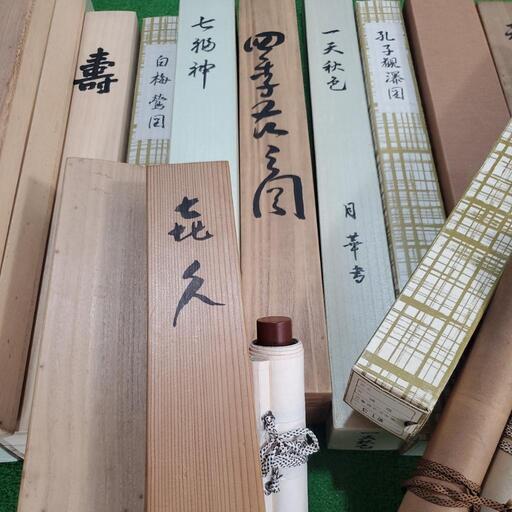 壽
白梅鶯図
七福神
四季花之図
一天秋色
月華書
孔子観瀑図
㐂久